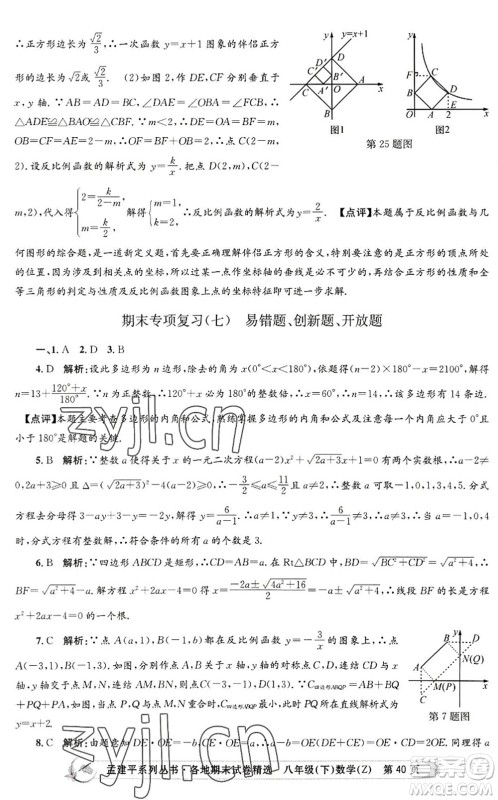 ∴正方形边长为√(2/3),∴一次函数 y=x+1 图象的伴侣正方
形的边长为√2或√(2/3). (2)如图 2,作 DE,CF 分别垂直于
x,y 轴. ∵ AB=AD=BC,∠DAE=∠OBA=∠FCB,∴
△ADE≌△BAO≌△CBF. ∵m<2,∴DE=OA=BF=m,
OB=CF=AE=2-m,∴OF=BF+OB=2,∴C(2-m,
2). 设反比例函数的解析式为 y=k/x. 把点 D(2,m),C(2-
m,2),代入得{2=k/(2-m), m=k/2. ∴反比例函数的解析式为 y=2/x. 【点评】本题属于反比例函数与几
何图形的综合题,是一道新定义题,首先要正确理解伴侣正方形的意义,特别要注意的是正方形的顶点所处
的位置,因为涉及到相关点的坐标,所以过某一点作坐标轴的垂线是必不可少的,同时还要注意正方形的性质和全
等三角形的判定与性质及反比例函数与其图象上的点的坐标的关系.
D′
C′
B′
A′
D
C
B
A
x
图1
F
C
B
D
O
A
2
E
x
图2
第 25 题图
期末专项复习(七) 易错题、创新题、开放题
一、1. A 2. D 3. B
4. D 解析:设此多边形为 n 边形,多除去的外角为 x(0°<x<180°),根据题意得(n-2)180°-x=2100°,解得
n=13+(120°+x)/180°. ∵n 为正整数,∴120°+x 为 180°的倍数,∴x=60°,∴n=14,∴该多边形有 14 条边.
【点评】本题主要考查多边形的内角和公式,熟记多边形的内角和公式以及多边形的一个内角应大于 0°且
小于 180°是解题的关键.
5. B 解析:∵整数 a 使得关于 x 的一元二次方程(a-2)x²+√(2a+3)x+1=0 有两个实数根,∴a-2≠
0,2a+3≥0 且 Δ=(√(2a+3))²-4(a-2)≥0,∴-3/2≤a≤11/2且 a≠2,∴整数 a 为-1,0,1,3,4,5. 分式
方程去分母得 3-ay+3-y=-y,解得 y=6/(a-1). ∵a≠1,∴y≠3,∴6/(a-1)≠3,∴a≠3,∴a=-1,0,4,5.
6. B 解析:∵四边形 ABCD 是矩形,∴CD=AB=a. 在 Rt△BCD 中,BD=√(BC²+CD²)=√(a²+4),∴
BF=√(a²+4)-a. 解方程 x²+2ax-4=0 得 x=(-2a±√(4a²+16))/2=-a±√(a²+4),∴线段 BF 的长是方程
x²+2ax-4=0 的一个根.
7. C 解析:∵点 A(a,1),B(-1,b)都在反比例函数 y=-3/x的图象上,∴点
A(-3,1),B(-1,3). 作点 A 关于 x 轴的对称点 C(-3,-1),点 B 关于 y 轴的对称
点 D(1,3),连结 CD,分别交 x 轴、y 轴于点 M,N. ∵C四边形ABQP=AB+BQ
+PQ+PA,∴当点 P 与点 M 重合,点 Q 与点 N 重合时,C四边形ABQP最小,∴直线 PQ 为
y=x+2.
B
D
N(Q)
A
M(P)
C
O
x
第 7 题图
8. C 解析:由题意知 DE=OD=OE,DE=OD=CE. 同理得 a
孟建平系列丛书·各地期末试卷精选 八年级(下)数学(Z) 第 40 页
zyjl.cn
zyjl.cn